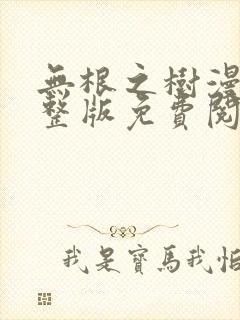 無根之樹漫
整版免費閱
我是寶馬我怕